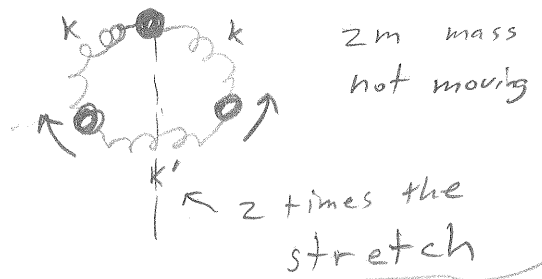 k k
2m mass
not moving
k'
2 times the
stretch